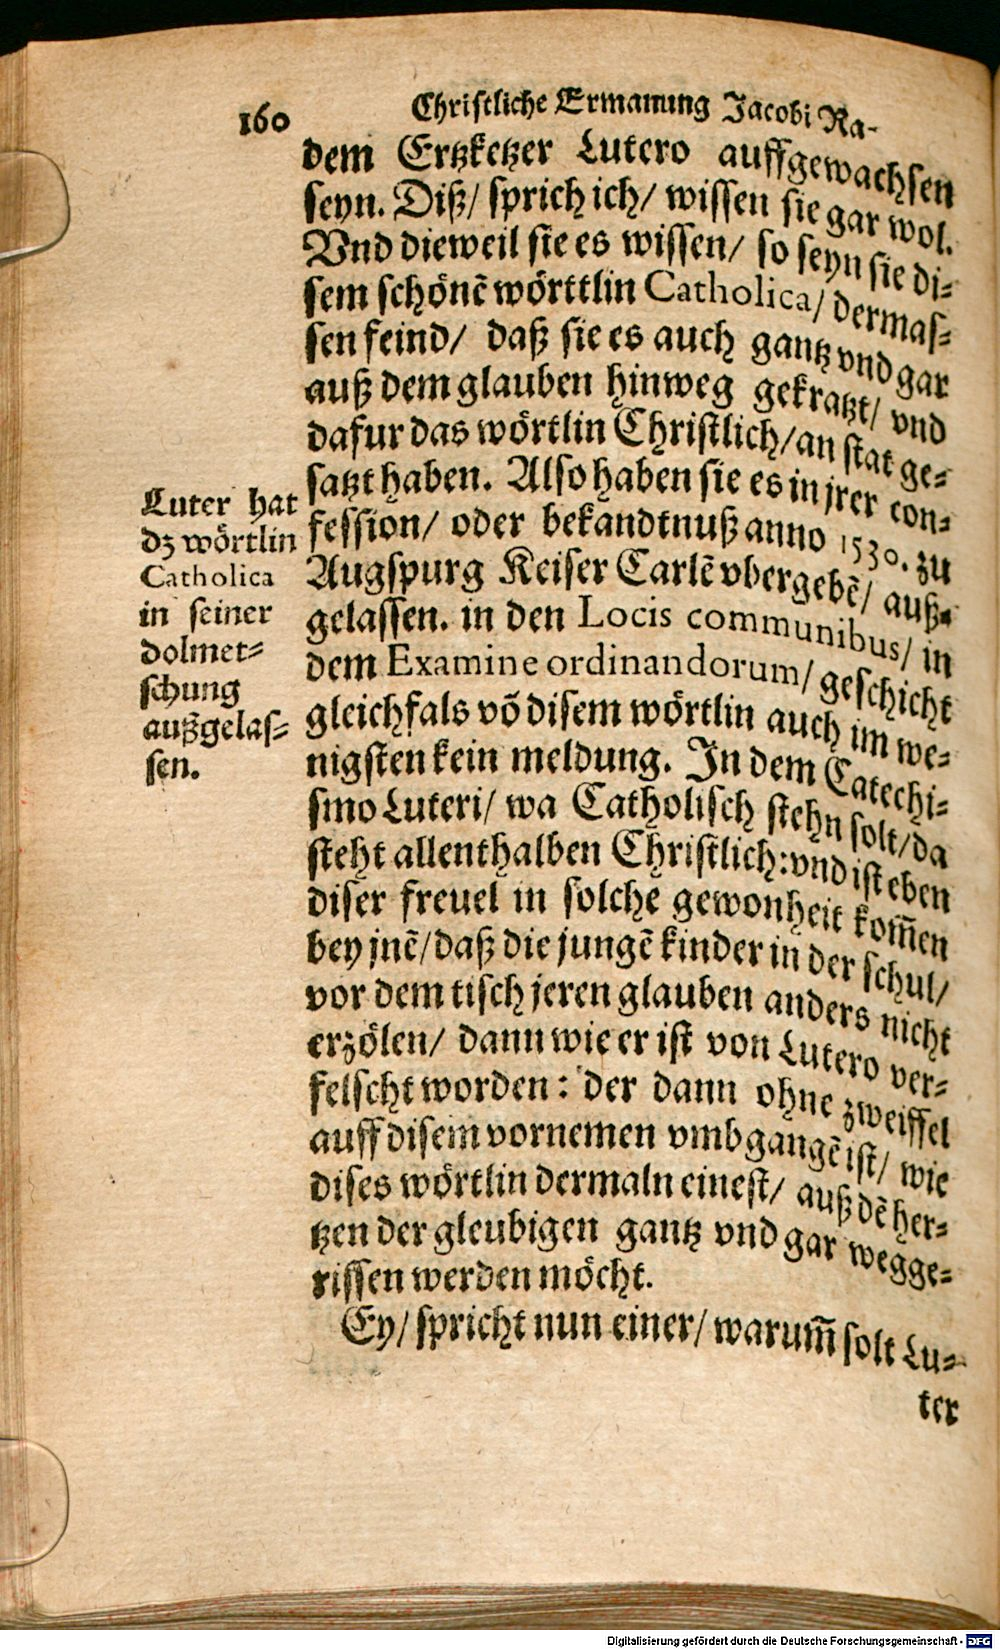 160
Christliche Ermanung Jacobi Ra-
dem Ertzketzer Lutero auffgewachsen
seyn. Diß/ sprich ich/ wissen sie gar wol.
Vnd dieweil sie es wissen/ so seyn sie di-
sem schönẽ wörttlin Catholica/ dermas-
sen feind/ daß sie es auch gantz vnd gar
auß dem glauben hinweg gekratzt/ vnd
dafur das wörtlin Christlich/ an stat ge-
satzt haben. Also haben sie es in jrer con-
fession/ oder bekandtnuß anno 1530. zu
Augspurg Keiser Carlẽ vbergebẽ/ auß-
gelassen. in den Locis communibus/ in
dem Examine ordinandorum/ geschicht
gleichfals võ disem wörtlin auch im we-
nigsten kein meldung. In dem Catechi-
smo Luteri/ wa Catholisch stehn solt/ da
steht allenthalben Christlich: vnd ist eben
diser freuel in solche gewonheit kom̃en
bey jnẽ/ daß die jungẽ kinder in der schul/
vor dem tisch jeren glauben anders nicht
erzölen/ dann wie er ist von Lutero ver-
felscht worden: der dann ohne zweiffel
auff disem vornemen vmbgangẽ ist/ wie
dises wörtlin dermaln einest/ auß dẽ her-
tzen der gleubigen gantz vnd gar wegge-
rissen werden möcht.
Ey/ spricht nun einer/ warum̃ solt Lu-
ter
Luter hat
dz wörtlin
Catholica
in seiner
dolmet-
schung
außgelas-
sen.
Digitalisierung gefördert durch die Deutsche Forschungsgemeinschaft - DFG